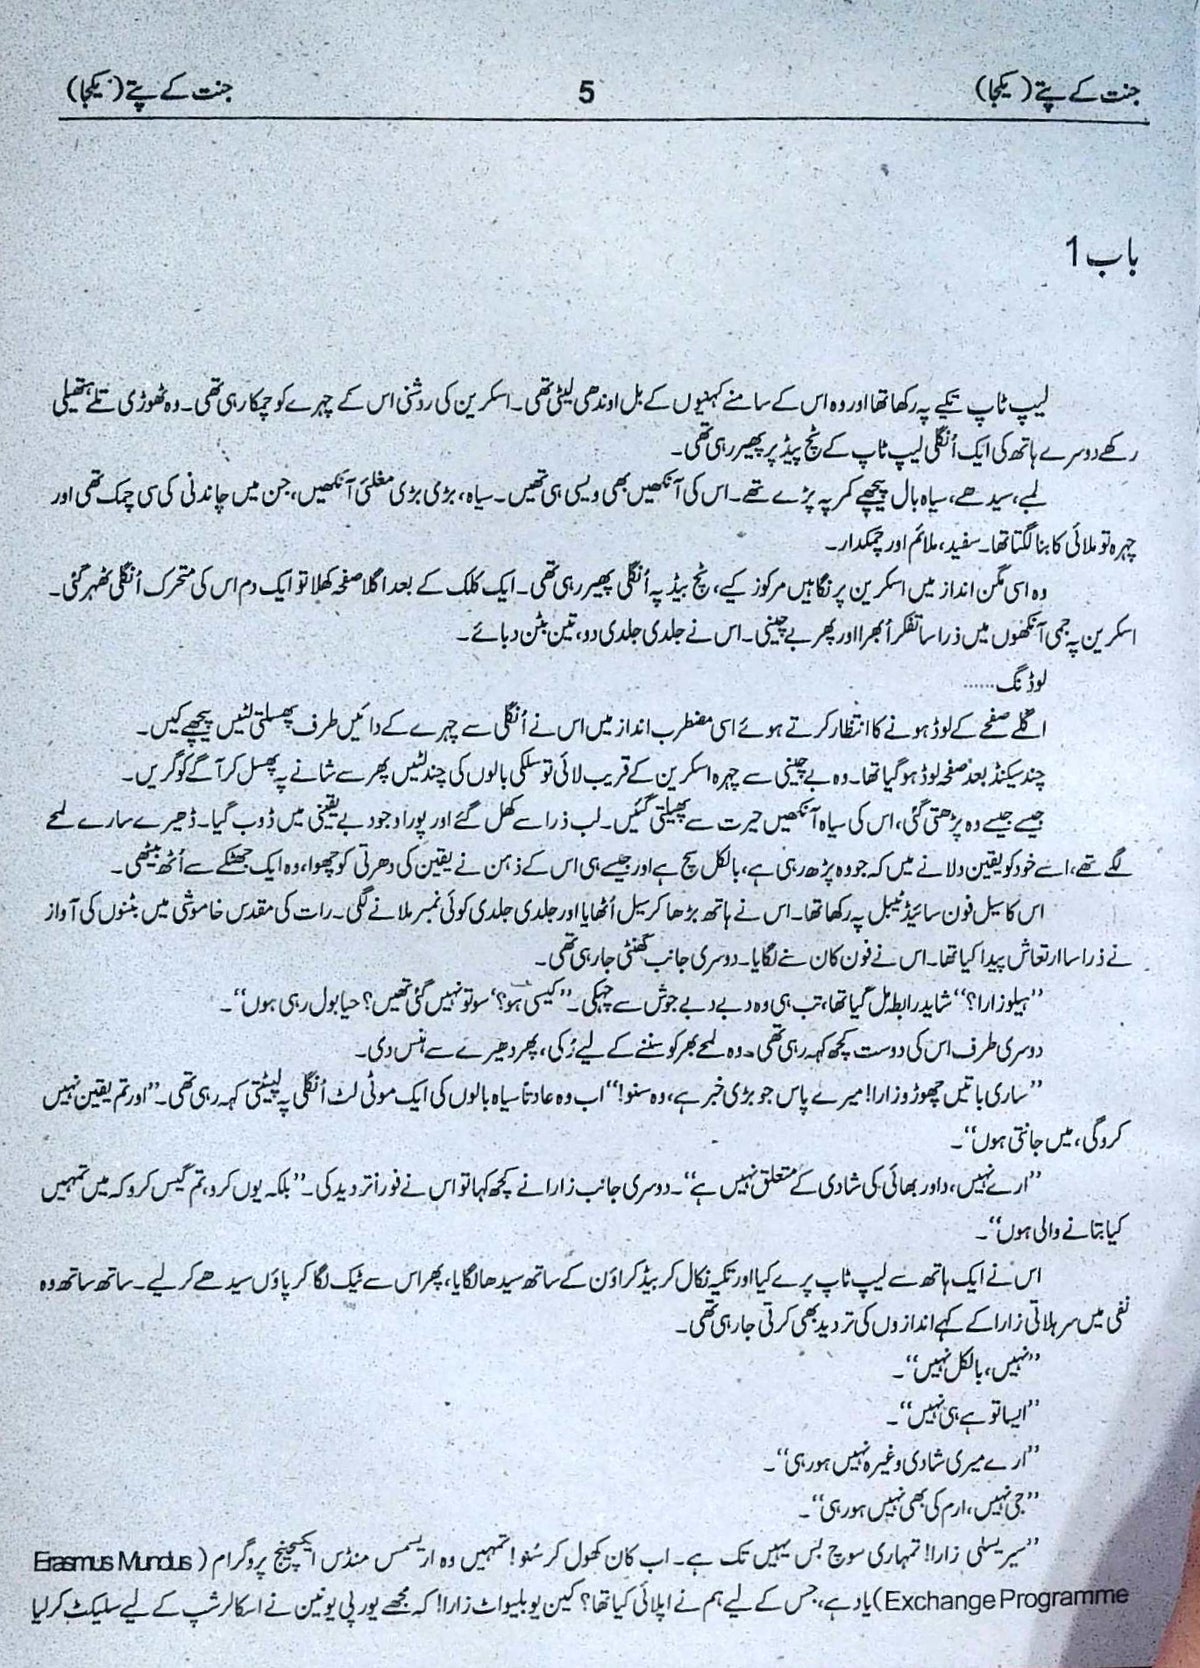 جنت کے پتے (یکجا) 5 جنت کے پتے (یکجا)
باب 1
لیپ ٹاپ تکیے پہ رکھا تھا اور وہ اس کے سامنے کہنیوں کے بل اوندھی لیٹی تھی۔ اسکرین کی روشنی اس کے چہرے کو چمکا رہی تھی۔ وہ ٹھوڑی تلے ہتھیلی
رکھے دوسرے ہاتھ کی ایک اُنگلی لیپ ٹاپ کے ٹچ پیڈ پر پھیر رہی تھی۔
لمبے، سیدھے، سیاہ بال پیچھے کمر پہ پڑے تھے۔ اس کی آنکھیں بھی ویسی ہی تھیں۔ سیاہ، بڑی بڑی مغلئی آنکھیں، جن میں چاندنی کی سی چمک تھی اور
چہرہ تو ملائی کا بنا لگتا تھا۔ سفید، ملائم اور چمکدار۔
وہ اسی مگن انداز میں اسکرین پر نگاہیں مرکوز کیے، ٹچ بیڈ پہ اُنگلی پھیر رہی تھی۔ ایک کلک کے بعد اگلا صفحہ کھلا تو ایک دم اس کی متحرک اُنگلی ٹھہر گئی۔
اسکرین پہ جمی آنکھوں میں ذرا سا تفکر اُبھرا اور پھر بے چینی۔ اس نے جلدی جلدی دو، تین بٹن دبائے۔
لوڈنگ......
اگلے صفحے کے لوڈ ہونے کا انتظار کرتے ہوئے اسی مضطرب انداز میں اس نے اُنگلی سے چہرے کے دائیں طرف پھسلتی لٹیں پیچھے کیں۔
چند سیکنڈ بعد صفحہ لوڈ ہو گیا تھا۔ وہ بے چینی سے چہرہ اسکرین کے قریب لائی تو سلکی بالوں کی چند لٹیں پھر سے شانے پہ پھسل کر آگے کو گریں۔
جیسے جیسے وہ پڑھتی گئی، اس کی سیاہ آنکھیں حیرت سے پھیلتی گئیں۔ لب ذرا سے کھل گئے اور پورا وجود بے یقینی میں ڈوب گیا۔ ڈھیرے سارے لمحے
لگے تھے، اسے خود کو یقین دلانے میں کہ جو وہ پڑھ رہی ہے، بالکل سچ ہے اور جیسے ہی اس کے ذہن نے یقین کی دھرتی کو چھوا، وہ ایک جھٹکے سے اُٹھ بیٹھی۔
اس کا سیل فون سائیڈ ٹیبل پہ رکھا تھا۔ اس نے ہاتھ بڑھا کر سیل اُٹھایا اور جلدی جلدی کوئی نمبر ملانے لگی۔ رات کی مقدس خاموشی میں بٹنوں کی آواز
نے ذرا سا ارتعاش پیدا کیا تھا۔ اس نے فون کان سے لگایا۔ دوسری جانب گھنٹی جا رہی تھی۔
”ہیلو زارا؟“ شاید رابطہ مل گیا تھا، تب ہی وہ دبے دبے جوش سے چہکی۔ ”کیسی ہو؟ سو تو نہیں گئی تھیں؟ حیا بول رہی ہوں“۔
دوسری طرف اس کی دوست کچھ کہہ رہی تھی۔ وہ لمحے بھر کو سننے کے لیے رُکی، پھر دھیرے سے ہنس دی۔
”ساری باتیں چھوڑو زارا! میرے پاس جو بڑی خبر ہے، وہ سنو!“ اب وہ عادتاً سیاہ بالوں کی ایک موٹی لٹ اُنگلی پہ لپیٹتی کہہ رہی تھی۔ ”اور تم یقین نہیں
کرو گی، میں جانتی ہوں“۔
”ارے نہیں، داور بھائی کی شادی کے متعلق نہیں ہے“۔ دوسری جانب زارا نے کچھ کہا تو اس نے فوراً تردید کی۔ ”بلکہ یوں کرو، تم گیس کرو کہ میں تمہیں
کیا بتانے والی ہوں“۔
اس نے ایک ہاتھ سے لیپ ٹاپ پرے کیا اور تکیہ نکال کر بیڈ کراؤن کے ساتھ سیدھا لگایا، پھر اس سے ٹیک لگا کر پاؤں سیدھے کر لیے۔ ساتھ ساتھ وہ
نفی میں سر ہلاتی زارا کے کہے اندازوں کی تردید بھی کرتی جا رہی تھی۔
”نہیں، بالکل نہیں“۔
”ایسا تو ہے ہی نہیں“۔
”ارے میری شادی وغیرہ نہیں ہو رہی“۔
”جی نہیں، ارم کی بھی نہیں ہو رہی“۔
”سیریسلی زارا! تمہاری سوچ بس یہیں تک ہے۔ اب کان کھول کر سُنو! تمہیں وہ اریسمس منڈس ایکسچینج پروگرام (Erasmus Mundus
Exchange Programme) یاد ہے، جس کے لیے ہم نے اپلائی کیا تھا؟ کین یو بلیو اٹ زارا! کہ مجھے یورپی یونین نے اسکالرشپ کے لیے سلیکٹ کر لیا